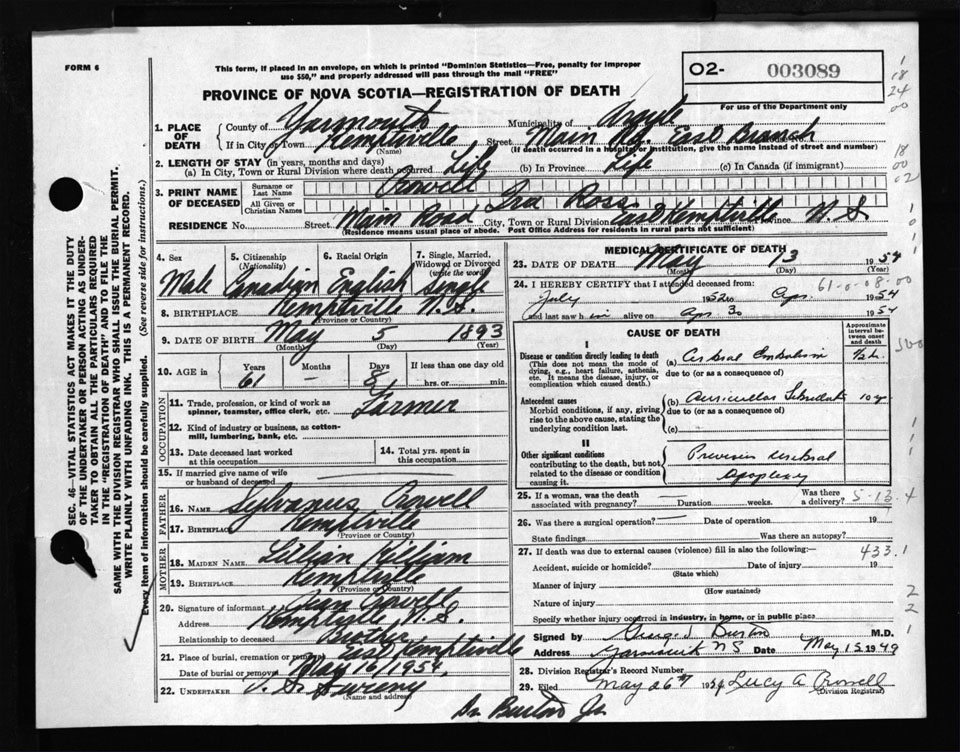 FORM 6
This form, if placed in an envelope, on which is printed "Dominion Statistics—Free, penalty for improper
use $50," and properly addressed will pass through the mail "FREE"
O2- 003089
For use of the Department only
PROVINCE OF NOVA SCOTIA—REGISTRATION OF DEATH
1. PLACE OF DEATH
County of Yarmouth Municipality of Argyle
If in City or Town Kemptville (Name) Street Main Rd. East Branch
(If death occurred in a hospital or institution, give the name instead of street and number)
2. LENGTH OF STAY (in years, months and days)
(a) In City, Town or Rural Division where death occurred Life (b) In Province Life (c) In Canada (if immigrant)
3. PRINT NAME OF DECEASED
Surname or Last Name Crowell
All Given or Christian Names Ira Ross
RESIDENCE No. Street Main Road City, Town or Rural Division East Kemptville Province N.S.
(Residence means usual place of abode. Post Office Address for residents in rural parts not sufficient)
4. Sex Male
5. Citizenship (Nationality) Canadian
6. Racial Origin English
7. Single, Married, Widowed or Divorced (write the word) Single
8. BIRTHPLACE Kemptville N.S.
(Province or Country)
9. DATE OF BIRTH May 5 1893
(Month) (Day) (Year)
10. AGE in Years 61 Months — Days 8 If less than one day old
hrs. or min.
OCCUPATION
11. Trade, profession, or kind of work as
spinner, teamster, office clerk, etc. Farmer
12. Kind of industry or business, as cotton-
mill, lumbering, bank, etc.
13. Date deceased last worked
at this occupation
14. Total yrs. spent in
this occupation
15. If married give name of wife
or husband of deceased
FATHER
16. NAME Sylvanus Crowell
17. BIRTHPLACE Kemptville
(Province or Country)
MOTHER
18. MAIDEN NAME Lillian
19. BIRTHPLACE Kemptville
(Province or Country)
20. Signature of informant Crowell
Address Kemptville N.S.
Relationship to deceased Brother
21. Place of burial, cremation or removal East Kemptville
Date of burial or removal May 16/1954
22. UNDERTAKER V. S. Sweeny
(Name and address)
MEDICAL CERTIFICATE OF DEATH
23. DATE OF DEATH May 13 1954
(Month) (Day) (Year)
61-0-08-00
24. I HEREBY CERTIFY that I attended deceased from:
July 1952 to Apr. 1954
and last saw h im alive on Apr 30 1954
CAUSE OF DEATH
Approximate interval between onset and death
I
Disease or condition directly leading to death
(This does not mean the mode of
dying, e.g., heart failure, asthenia,
etc. It means the disease, injury, or
complication which caused death.)
(a) Cerebral Embolism ½ h.
due to (or as a consequence of)
Antecedent causes
Morbid conditions, if any, giving
rise to the above cause, stating the
underlying condition last.
(b) Auricular Fibrillation 10 y
due to (or as a consequence of)
(c)
II
Other significant conditions
contributing to the death, but not
related to the disease or condition
causing it.
Previous cerebral
apoplexy
25. If a woman, was the death
associated with pregnancy? — Duration weeks. Was there
a delivery?
5-13.4
26. Was there a surgical operation? — Date of operation 19
State findings Was there an autopsy?
27. If death was due to external causes (violence) fill in also the following:—
433.1
Accident, suicide or homicide? Date of injury 19
(State which)
Manner of injury
(How sustained)
Nature of injury
Specify whether injury occurred in industry, in home, or in public place
Signed by Burton M.D.
Address Yarmouth NS Date May 15 1949
28. Division Registrar's Record Number
29. Filed May 26th 1954 Lucy A Crowell
(Division Registrar)
Dr Burton Jr
SEC. 46—VITAL STATISTICS ACT MAKES IT THE DUTY
OF THE UNDERTAKER OR PERSON ACTING AS UNDER-
TAKER TO OBTAIN ALL THE PARTICULARS REQUIRED
IN THE "REGISTRATION OF DEATH" AND TO FILE THE
SAME WITH THE DIVISION REGISTRAR WHO SHALL ISSUE THE BURIAL PERMIT.
WRITE PLAINLY WITH UNFADING INK. THIS IS A PERMANENT RECORD.
Every item of information should be carefully supplied. (See reverse side for instructions.)